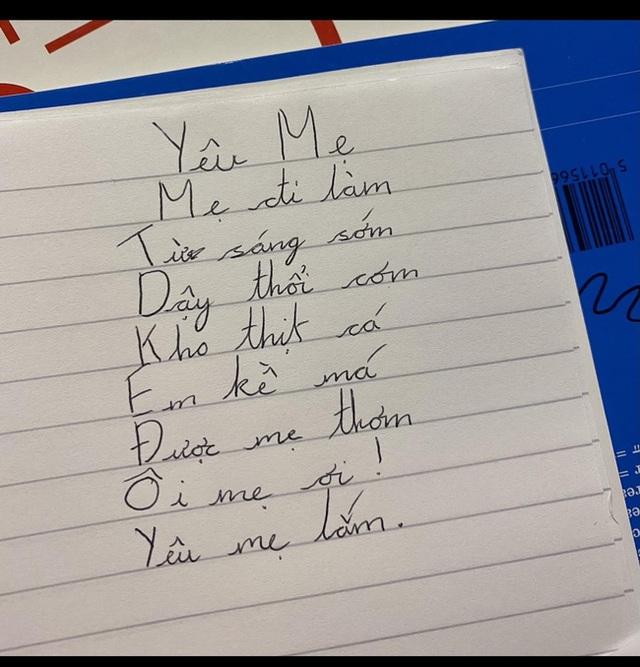 Yêu Mẹ
Mẹ đi làm
Từ sáng sớm
Dậy thổi cơm
Kho thịt cá
Em kề má
Được mẹ thơm
Ôi mẹ ơi!
Yêu mẹ lắm.